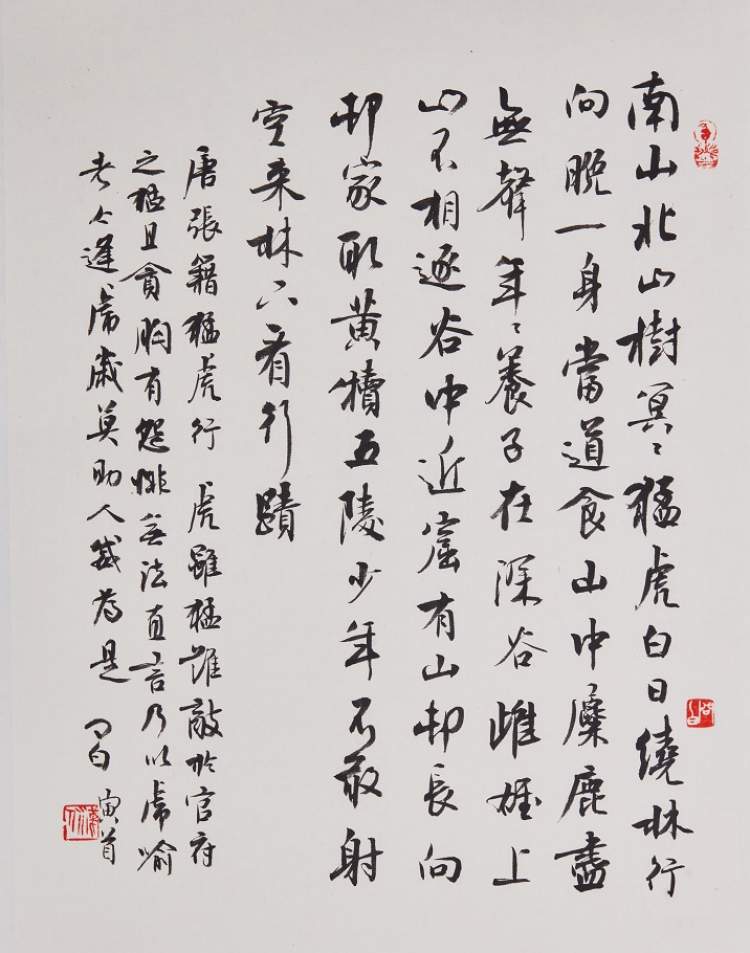 南山北山樹冥〻猛虎白日繞林行
向晚一身當道食山中麋鹿盡
無聲年〻養子在深谷雌雄上
山不相逐谷中近窟有山邨長向
邨家取黄犢五陵少年不敢射
空来林下看行蹟
唐張籍猛虎行 虎雖猛難敵於官府
之猛且貪胸有怨悱無法直言乃以虎喻
者今逢虎歲莫助人為是 寅首